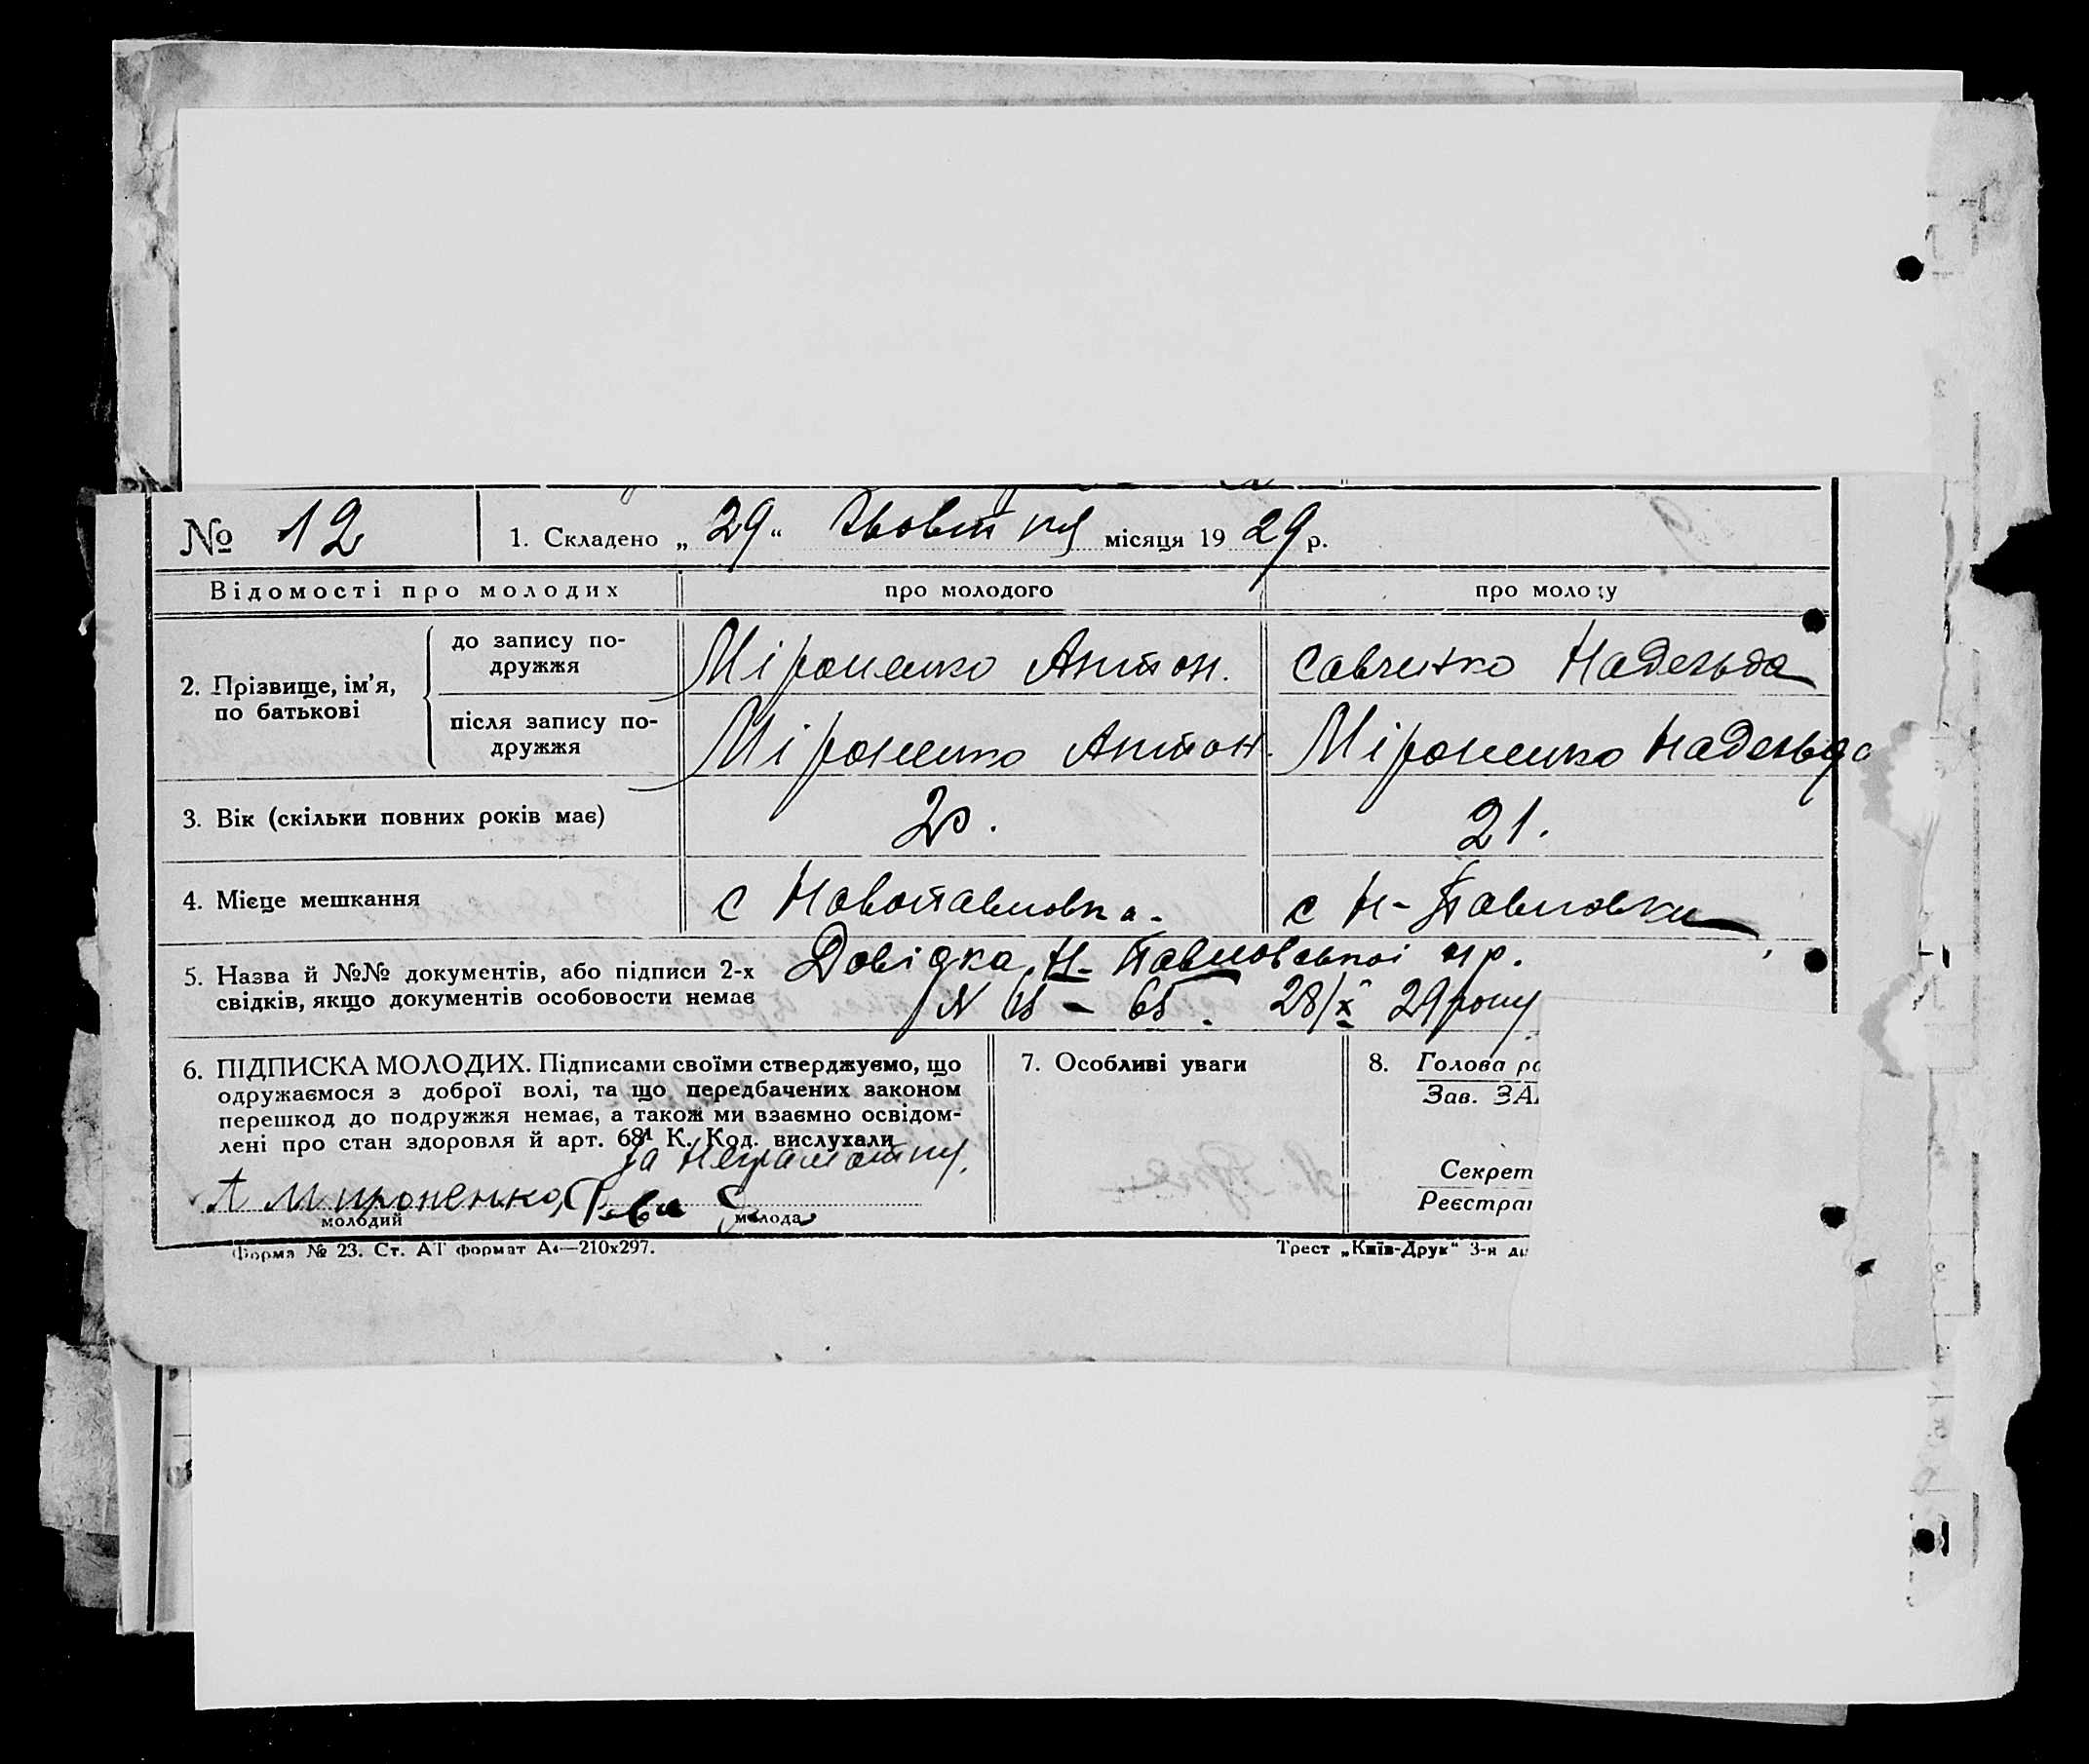 № 12
1. Складено „ 29 “ Жовтня місяця 19 29 р.
Відомості про молодих про молодого про молоду
2. Прізвище, ім’я, по батькові
до запису подружжя Міроненко Антон. Савченко Надежда
після запису подружжя Міроненко Антон. Міроненко Надежда
3. Вік (скільки повних років має) 20. 21.
4. Місце мешкання с Новопавловка. с Н-Павловки
5. Назва й №№ документів, або підписи 2-х Довідка Н-Павловської
свідків, якщо документів особовости немає N 28/X 29 року
6. ПІДПИСКА МОЛОДИХ. Підписами своїми стверджуємо, що
одружаємося з доброї волі, та що передбачених законом
перешкод до подружжя немає, а також ми взаємно освідом-
лені про стан здоровля й арт. 681 К. Код. вислухали
За неграмотну.
А Мироненко
молодий молода
7. Особливі уваги
8. Голова ра
Зав. ЗА
Секрет
Реєстра
Форма № 23. Ст. АТ формат А4—210х297.
Трест „Київ-Друк“ 3-я